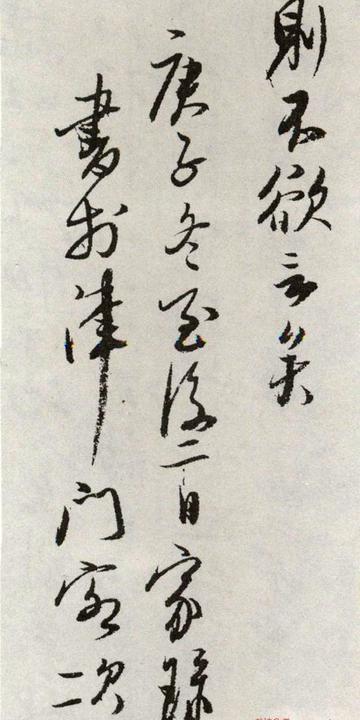 則不欲言矣
庚子冬至後二日家
書於津門客次